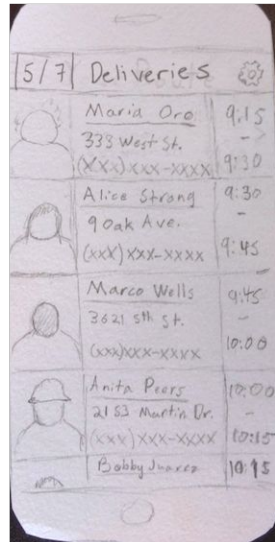 5/7 Deliveries
Maria Oro 9:15
333 West St. -
(xxx)xxx-xxxx 9:30
Alice Strong 9:30
9 Oak Ave. -
(xxx)xxx-xxxx 9:45
Marco Wells 9:45
3621 5th St. -
(xxx)xxx-xxxx 10:00
Anita Peers 10:00
2153 Martin Dr. -
(xxx)xxx-xxxx 10:15
Bobby Juarez 10:15